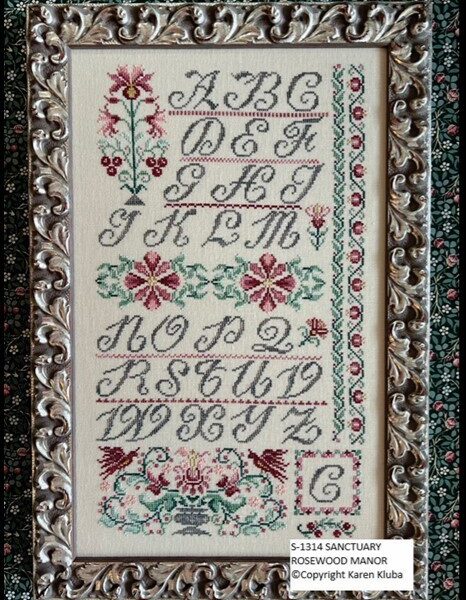 A B C
D E F
G H I
J K L M
N O P Q
R S T U V
W X Y Z
C
S-1314 SANCTUARY
ROSEWOOD MANOR
©Copyright Karen Kluba